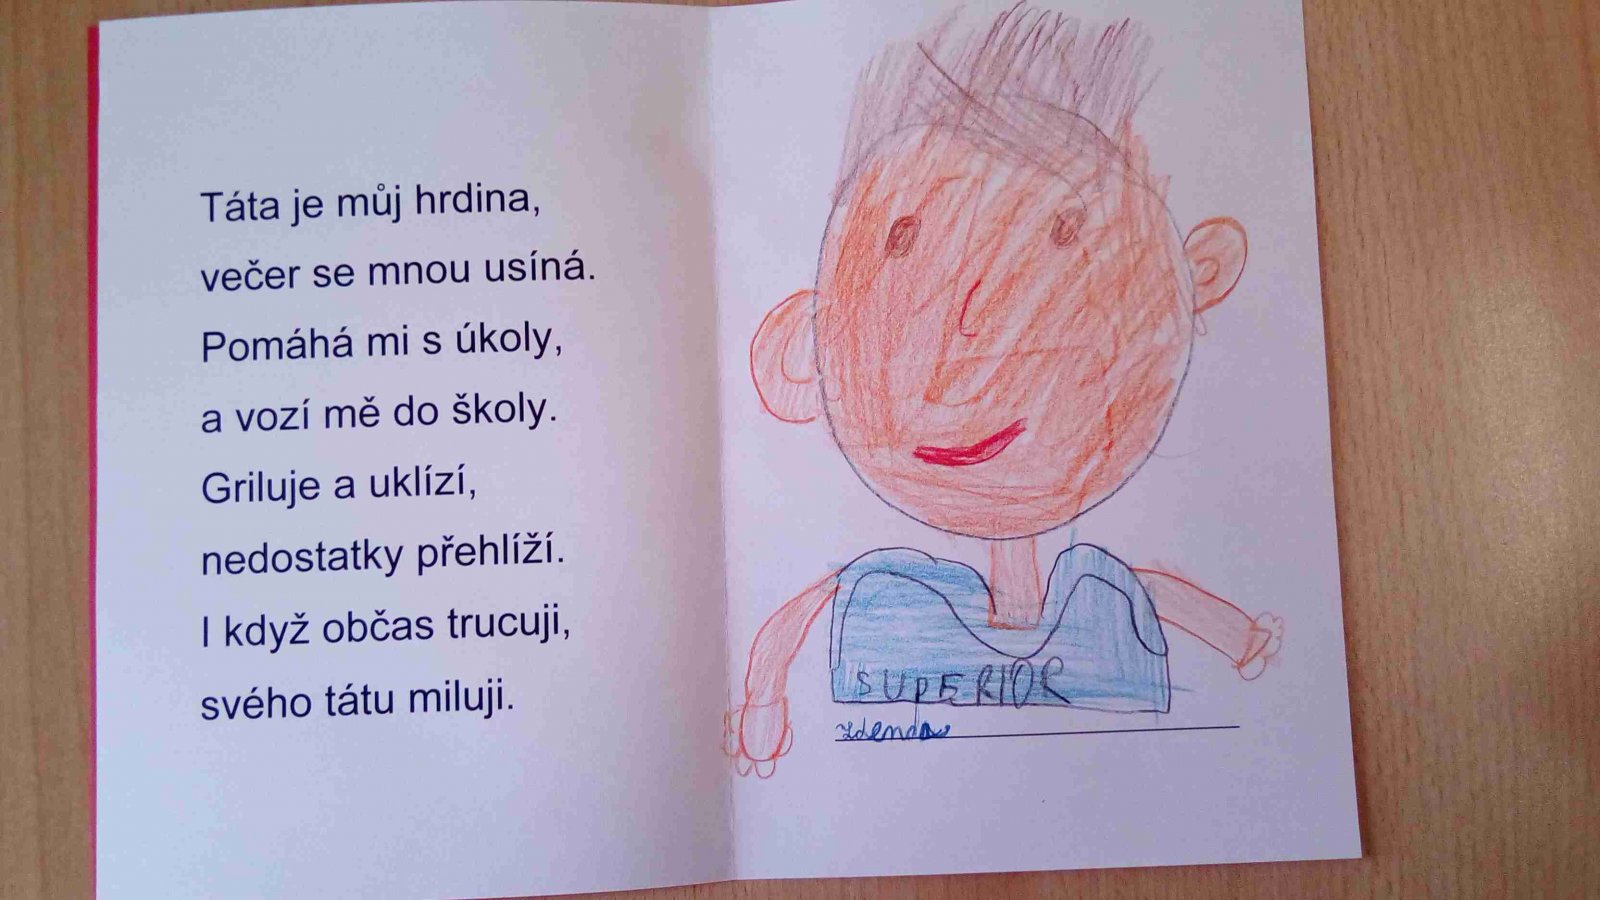 Táta je můj hrdina,
večer se mnou usíná.
Pomáhá mi s úkoly,
a vozí mě do školy.
Griluje a uklízí,
nedostatky přehlíží.
I když občas trucuji,
svého tátu miluji.
SUPERIOR
Zdenda